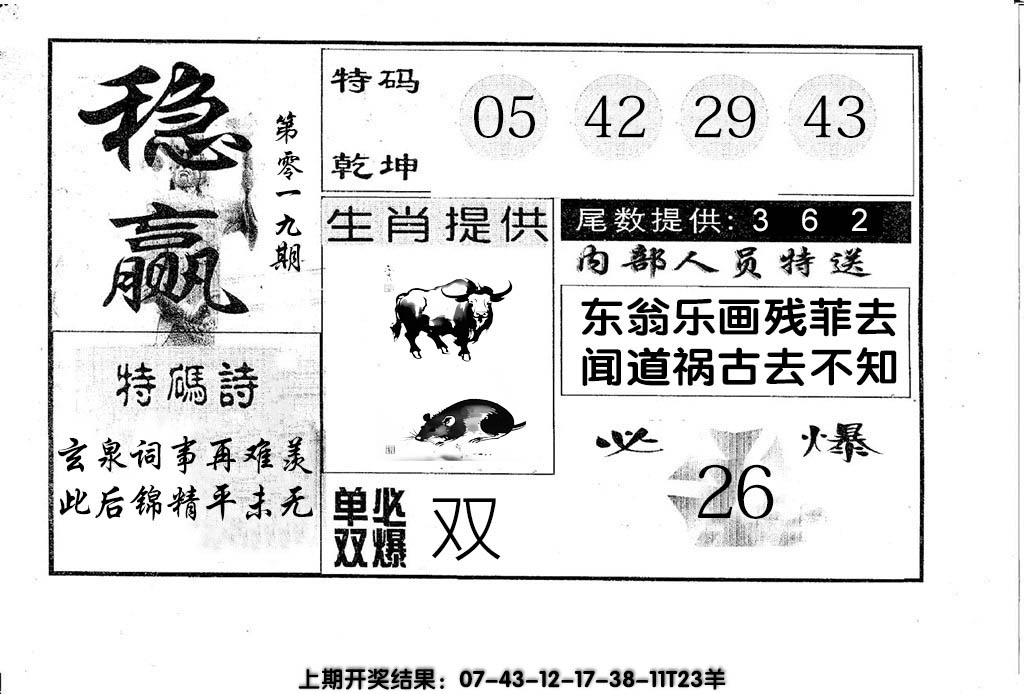 稳赢
第零一九期
特码诗
玄泉词事再难羡
此后锦精平未无
特码
乾坤
05 42 29 43
生肖提供
单双必爆
双
尾数提供: 3 6 2
内部人员特送
东翁乐画残菲去
闻道祸古去不知
必爆
26
上期开奖结果：07-43-12-17-38-11T23羊